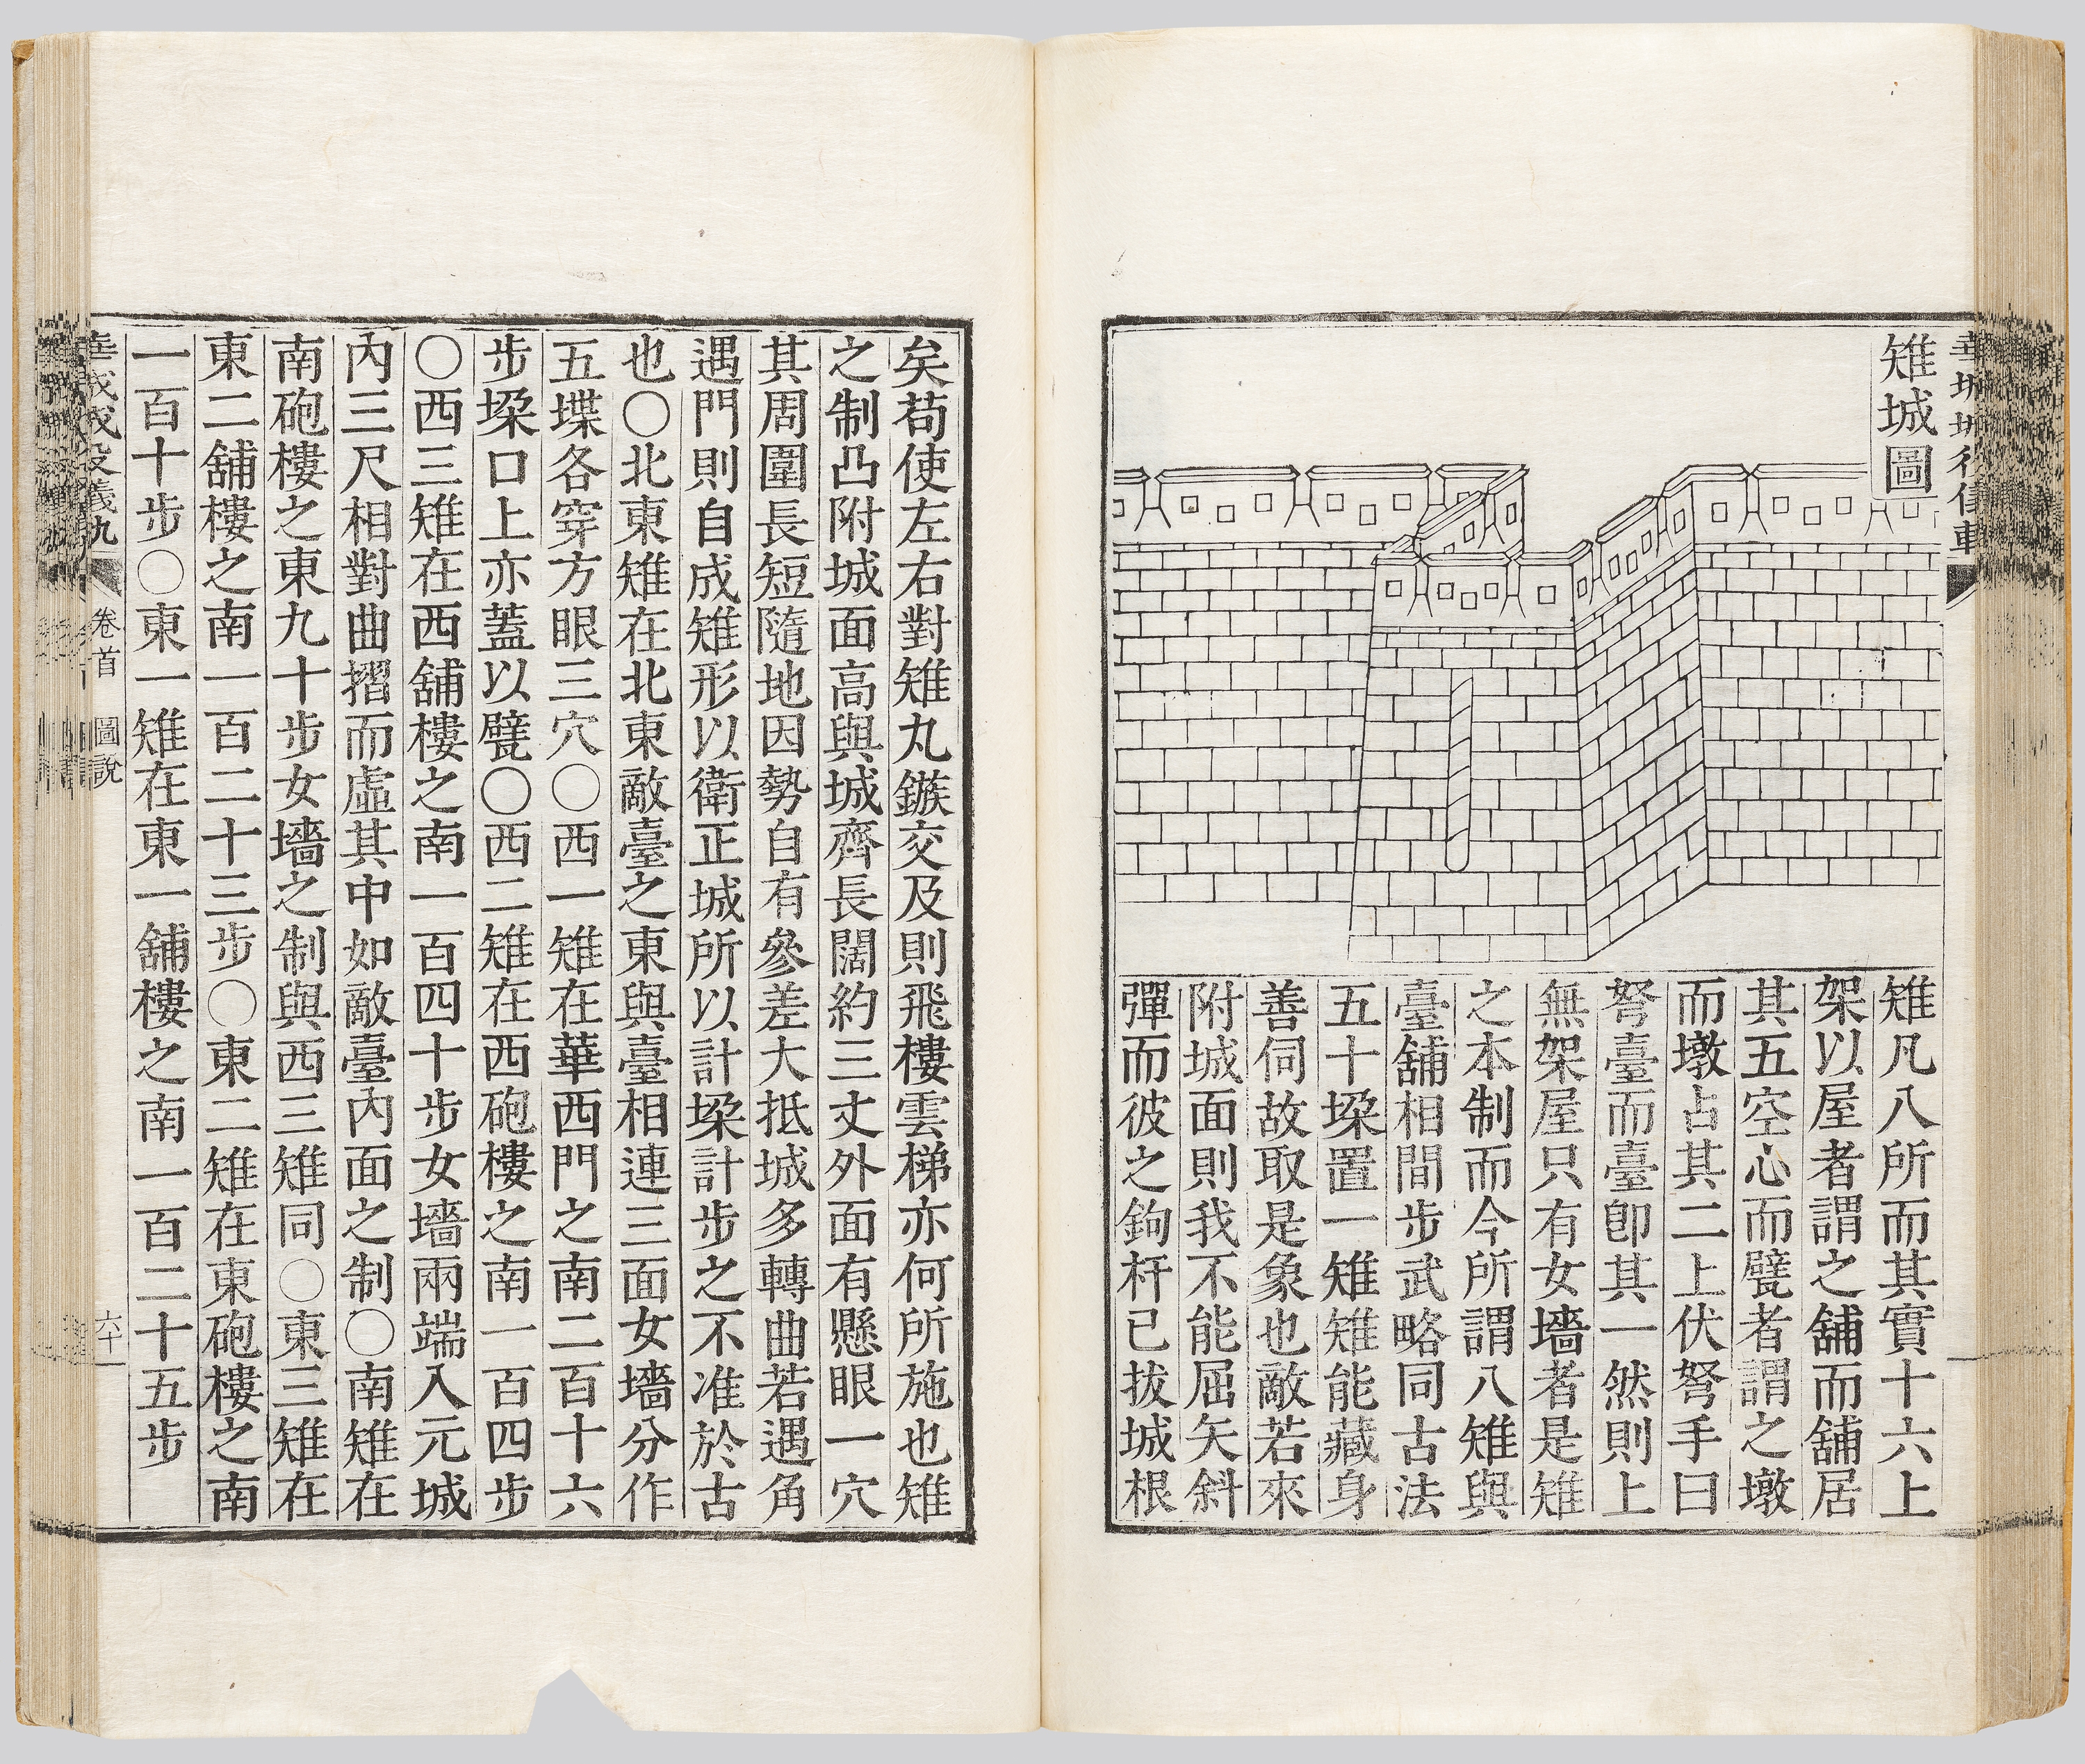 雉城圖
雉凡八所而其實十六上
架以屋者謂之舖而舖居
其五空心而甓者謂之墩
而墩占其二上伏弩手曰
弩臺而臺卽其一然則上
無架屋只有女墻者是雉
之本制而今所謂八雉與
臺舖相間步武略同古法
五十垜置一雉雉能藏身
善伺故取是象也敵若來
附城面則我不能屈矢斜
彈而彼之鉤杆已拔城根
矣苟使左右對雉丸鏃交及則飛樓雲梯亦何所施也雉
之制凸附城面高與城齊長闊約三丈外面有懸眼一穴
其周圍長短隨地因勢自有參差大抵城多轉曲若遇角
遇門則自成雉形以衛正城所以計垜計步之不准於古
也〇北東雉在北東敵臺之東與臺相連三面女墻分作
五堞各穿方眼三穴〇西一雉在華西門之南二百十六
步垜口上亦蓋以甓〇西二雉在西砲樓之南一百四步
〇西三雉在西舖樓之南一百四十步女墻兩端入元城
內三尺相對曲摺而虛其中如敵臺內面之制〇南雉在
南砲樓之東九十步女墻之制與西三雉同〇東三雉在
東二舖樓之南一百二十三步〇東二雉在東砲樓之南
一百十步〇東一雉在東一舖樓之南一百二十五步
卷首 圖說
六十一